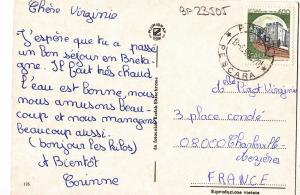 Chère Virginie
BF 23505
J'espère que tu a passé
un bon séjour en Breta-
gne. Il fait très chaud
l'eau est bonne, nous
nous amusons beau-
coup et nous mangeons
beaucoup aussi.
(bonjour les kilos)
A Bientôt
400
PESCARA
Virginie
3, place condé
08000 Charleville
Mézières
FRANCE
126
Riproduzione vietata